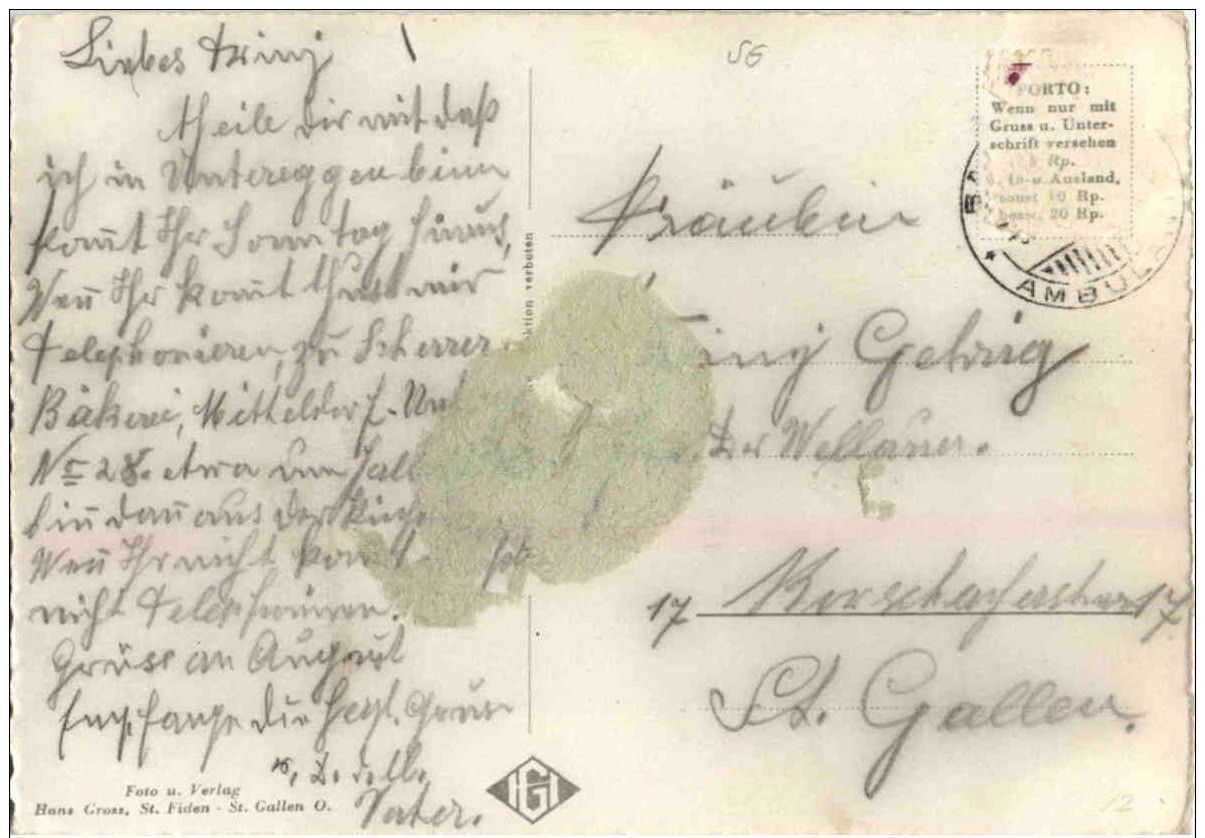 Liebes Trinj
theile dir mit daß
ich in Untereggen binn
komt Ihr Sonntag hinaus,
Wen Ihr komt thust mir
telephonieren, zu Scherrer
Bäkerei, Mitteldorf-Unt
No 28. etwa um
bin dan aus der Küche
Wen Ihr nicht komt
nicht telephonieren.
Grüss an August
Empfange die hezl. Grüsse
Vater.
Foto u. Verlag
Hans Gross, St. Fiden - St. Gallen O.
HGI
ktion verboten
SG
PORTO:
Wenn nur mit
Gruss u. Unter-
schrift versehen
Rp.
In- u. Ausland,
sonst 10 Rp.
bezw. 20 Rp.
AMBUL
Fräulein
inj Gehrig
Wellauer.
17 Rorschacherstrasse 17
St. Gallen.
12